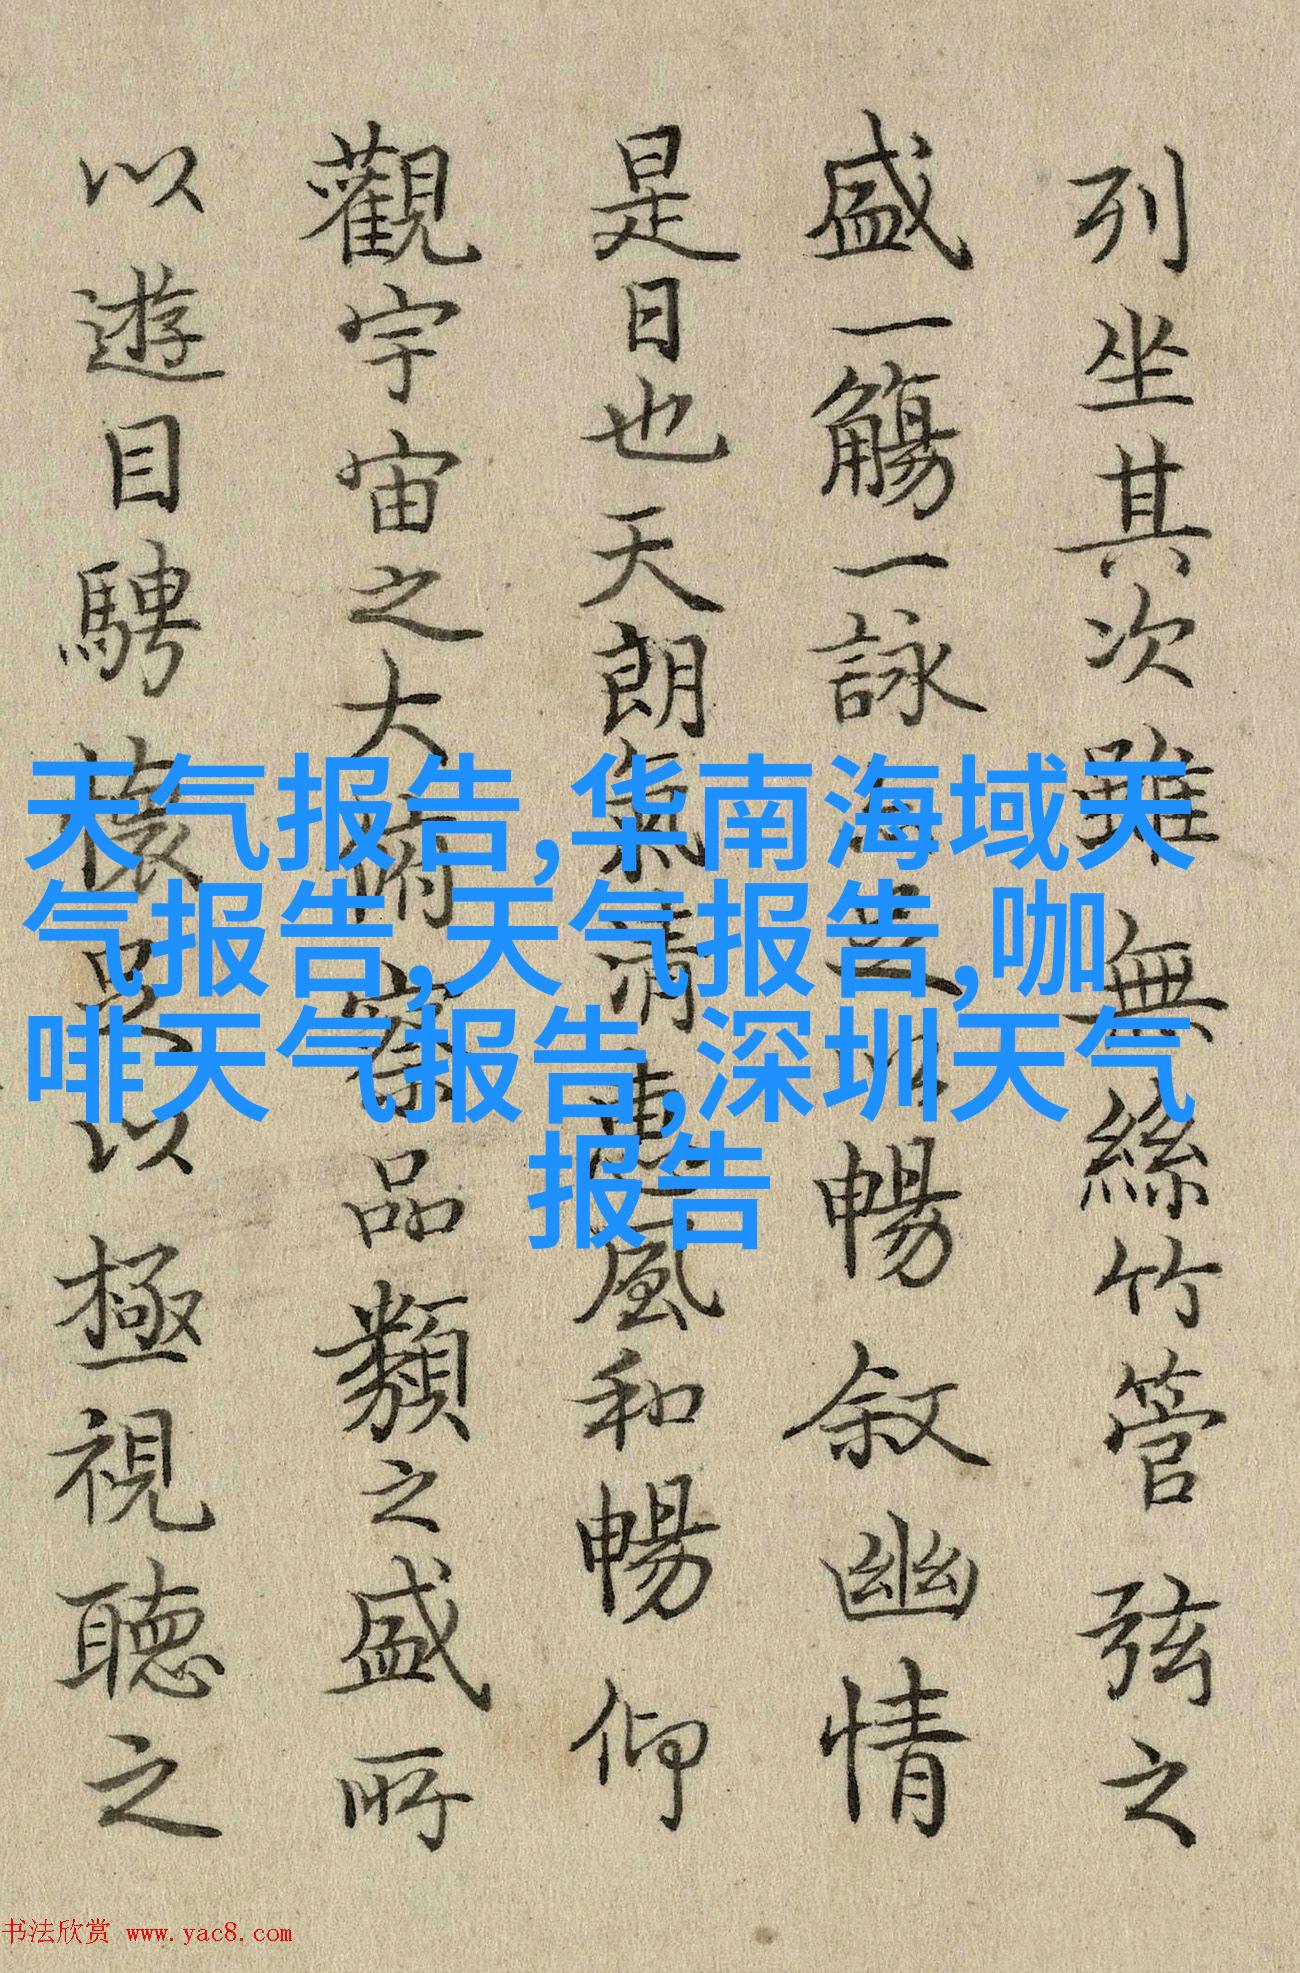 列坐其次雖無絲竹管弦之
盛一觴一詠暢叙幽情
是日也天朗氣清惠風和暢仰
觀宇宙之大俯察品類之盛所
以遊目騁懷足以極視聽之
天气报告,华南海域天
气报告,天气报告,咖
啡天气报告,深圳天气
报告
书法欣赏 www.yac8.com